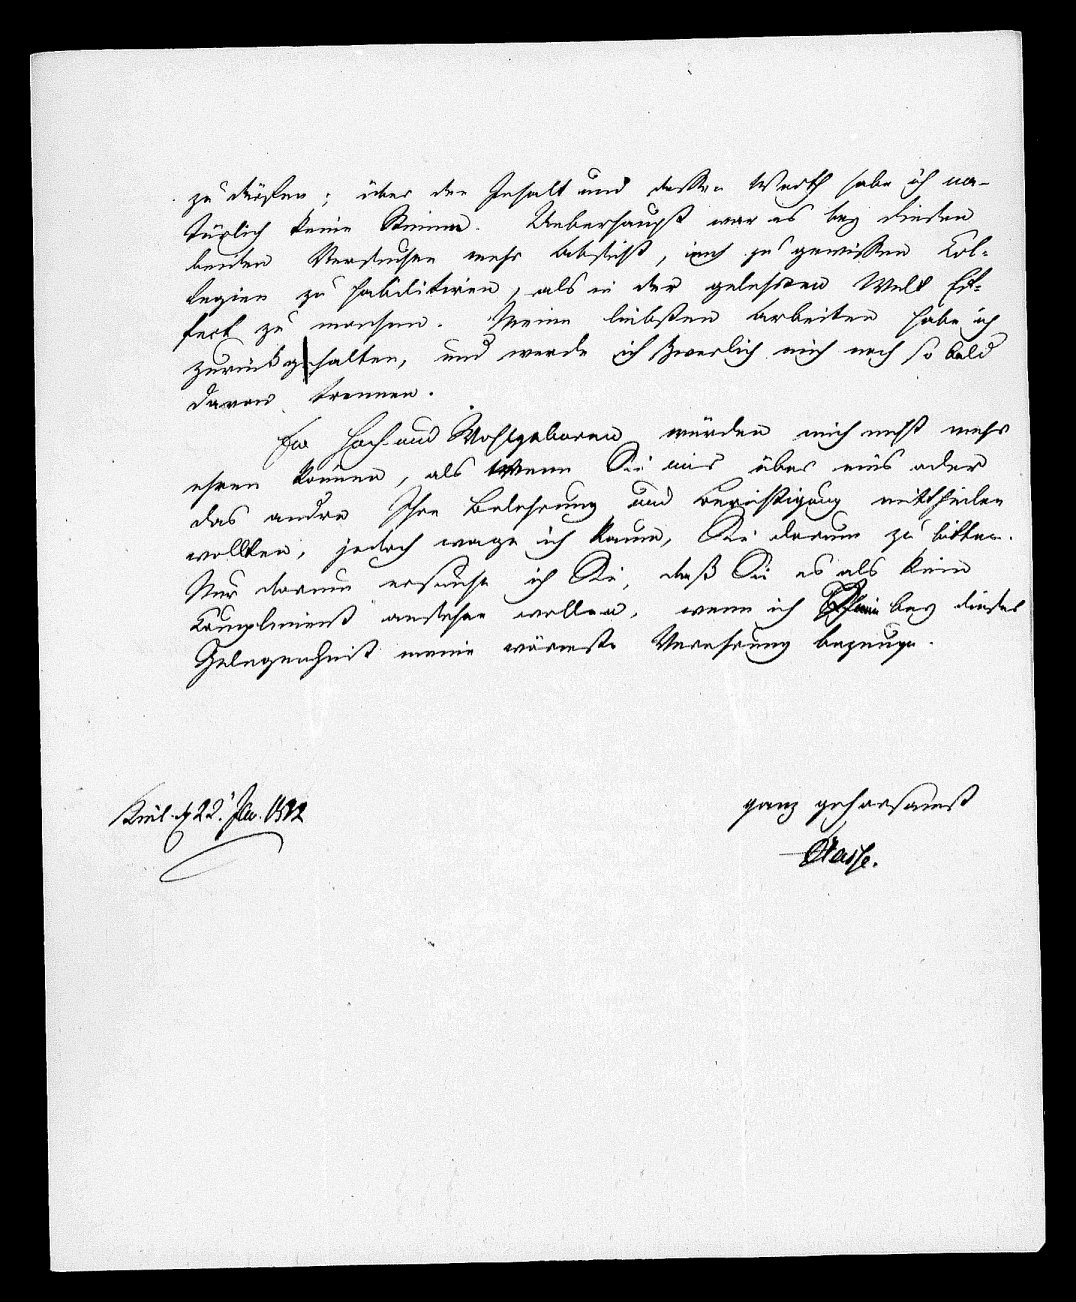 zu dürfen; über den Inhalt und dessen Werth habe ich na-
türlich keine Stimme. Ueberhaupt war es bey diesen
beiden Versuchen mehr Absicht, mich zu gewissen Col-
legien zu habilitiren, als in der gelehrten Welt Ef-
fect zu machen. Meine liebsten Arbeiten habe ich
zurückgehalten, und werde ich schwerlich mich noch so bald
davon trennen.
Ew Hoch- und Wohlgeboren würden mich nicht mehr
ehren können, als wenn Sie mir über eins oder
das andre Ihre Belehrung und Berichtigung mittheilen
wollten; jedoch wage ich kaum, Sie darum zu bitten.
Nur darum ersuche ich Sie, daß Sie es als kein
Compliment ansehen wollen, wenn ich bey dieser
Gelegenheit meine wärmste Verehrung bezeuge.
Kiel d 22. Jan. 1812
ganz gehorsamst
Hasse.